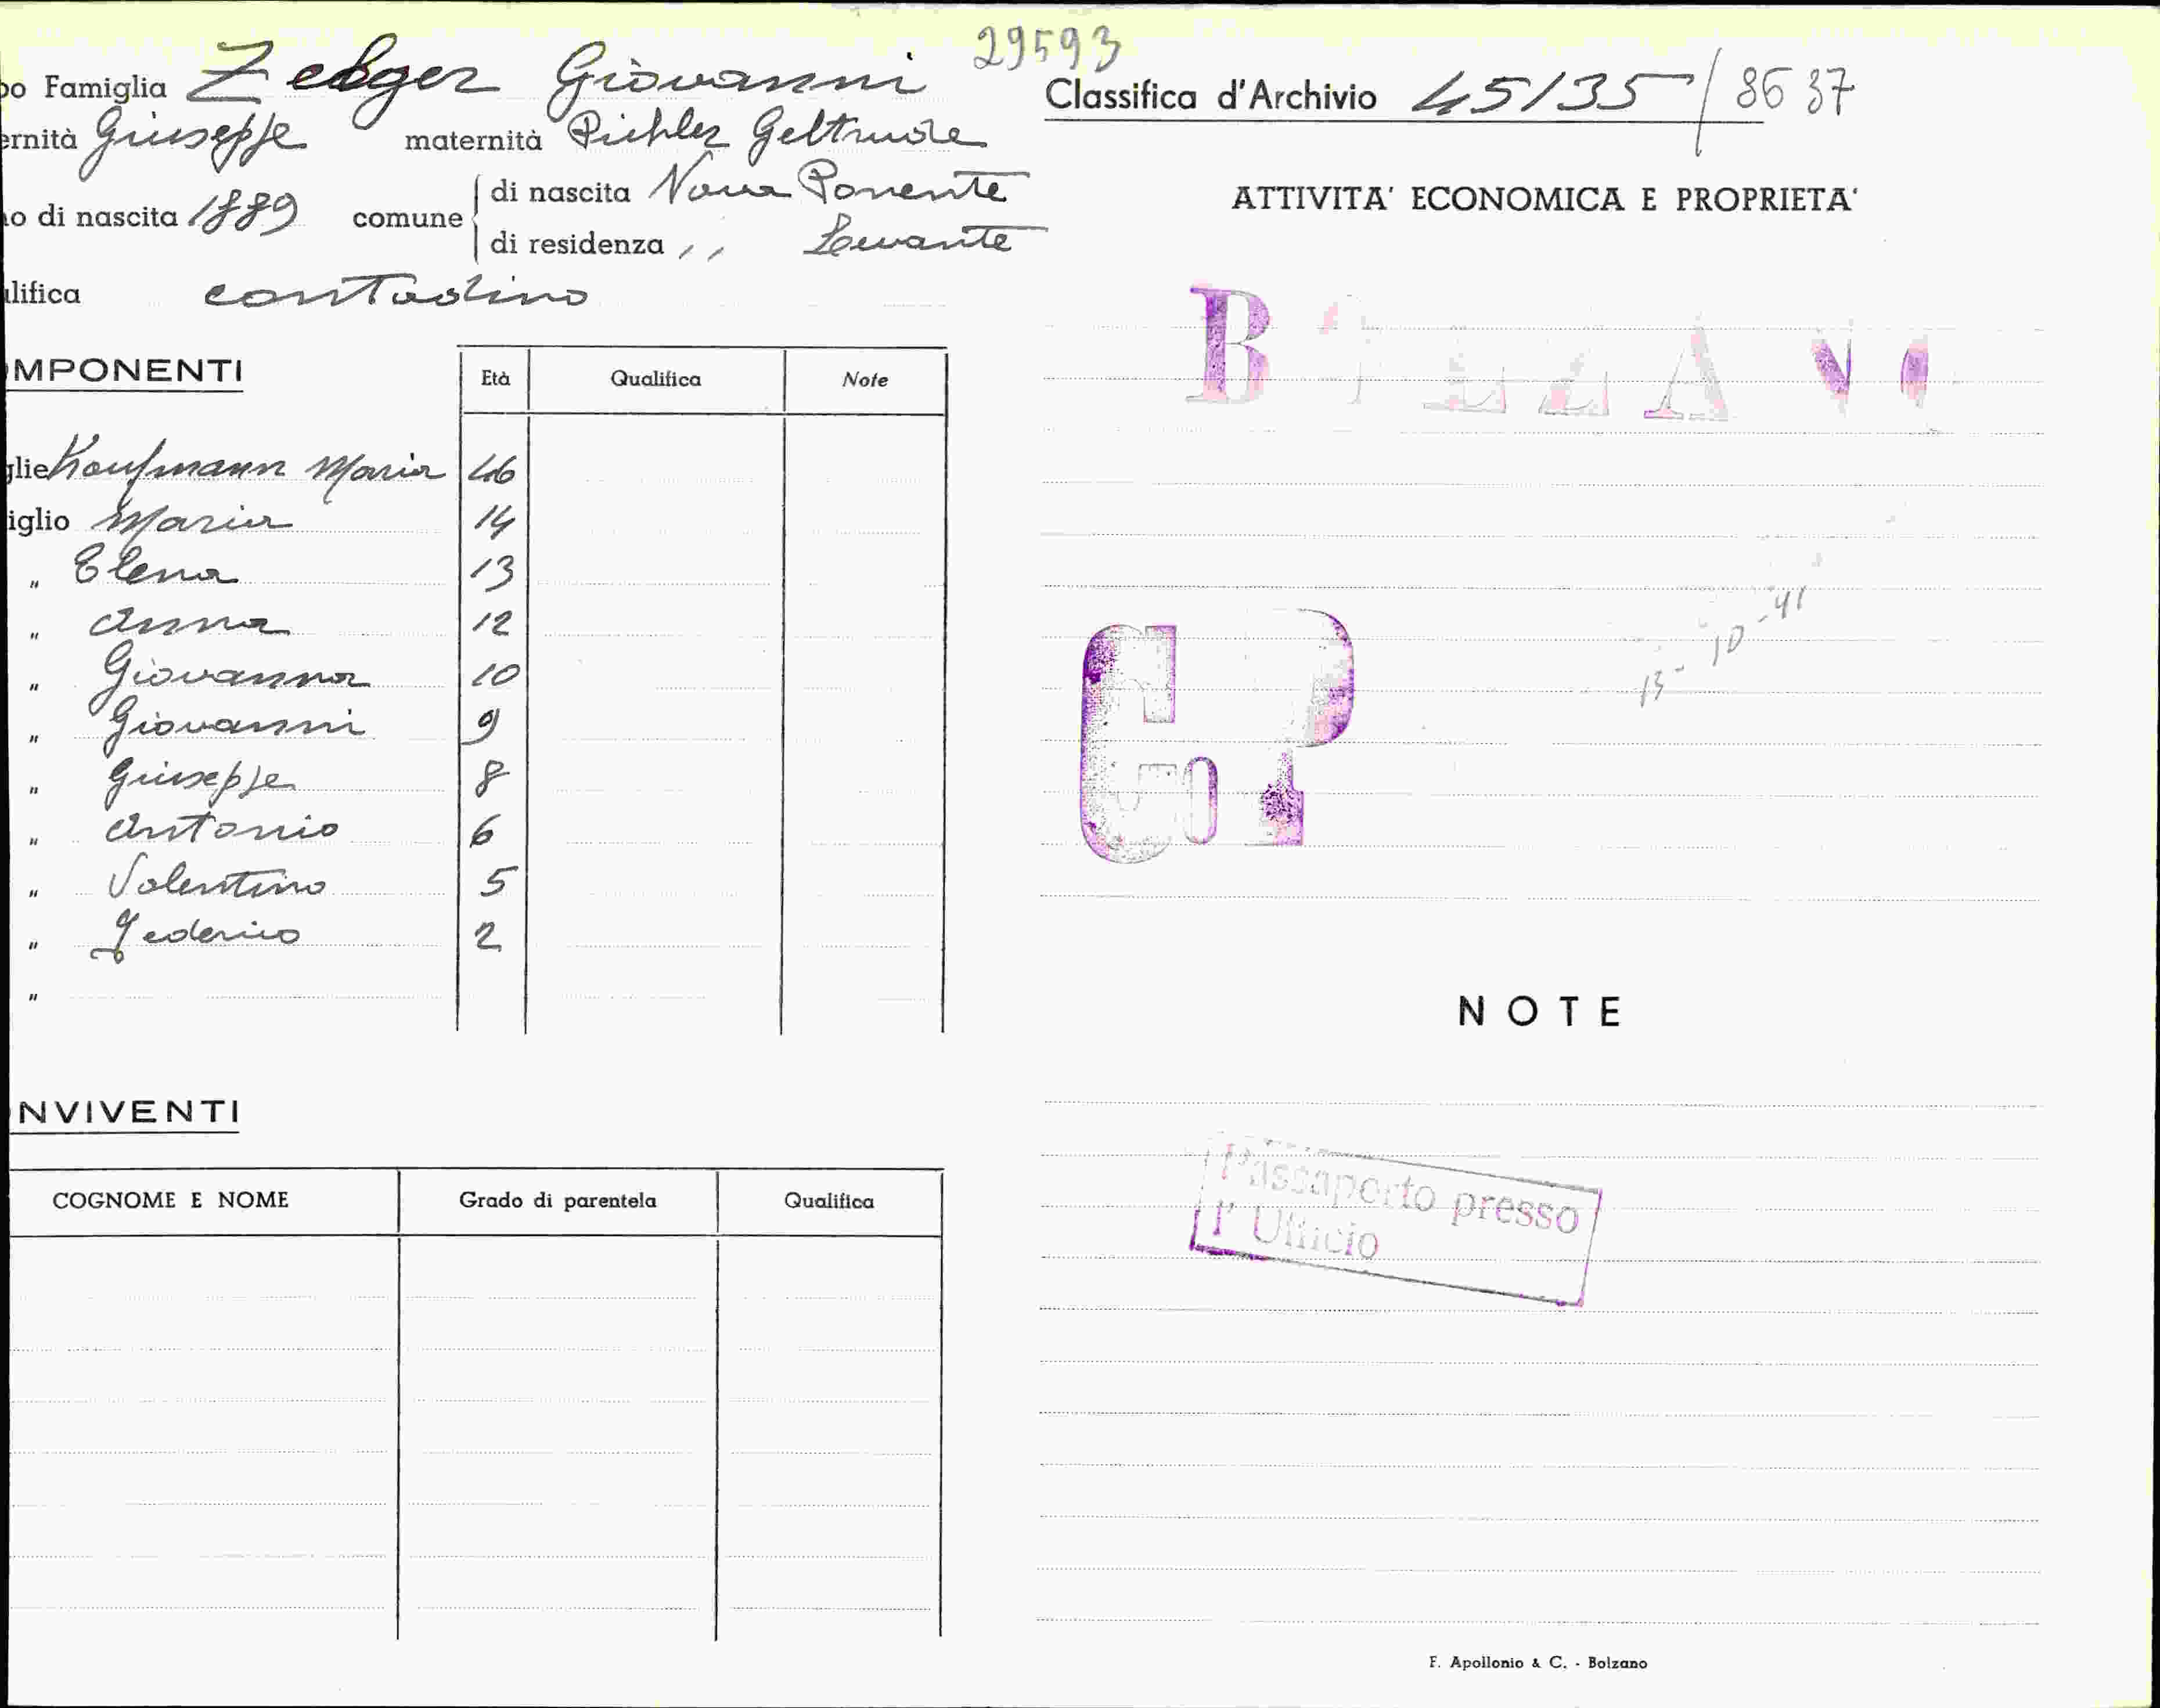 29593
po Famiglia Zelger Giovanni
ernità Giuseppe maternità Pichler Geltrude
no di nascita 1889 comune di nascita Nova Ponente
di residenza ,, Levante
lifica contadino
MPONENTI Età Qualifica Note
glie Kaufmann Maria 46
iglio Maria 14
" Elena 13
" Anna 12
" Giovanna 10
" Giovanni 9
" Giuseppe 8
" Antonio 6
" Valentino 5
" Federico 2
"
NVIVENTI
COGNOME E NOME Grado di parentela Qualifica
Classifica d'Archivio 45/35 / 8637
ATTIVITA' ECONOMICA E PROPRIETA'
BOLZANO
13-10-41
NOTE
Passaporto presso
l'Ufficio
F. Apollonio & C. - Bolzano